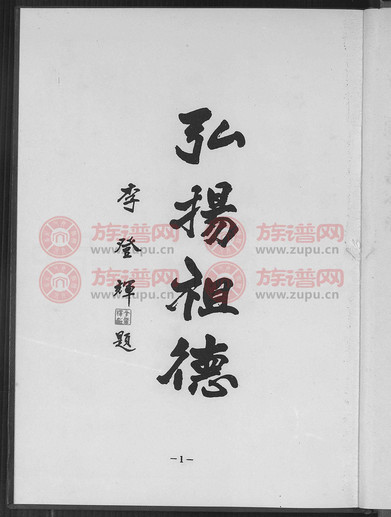 弘揚祖德
李登輝題
-1-
族谱网
www.zupu.cn
族谱网
www.zupu.cn
族谱网
www.zupu.cn
族谱网
www.zupu.cn